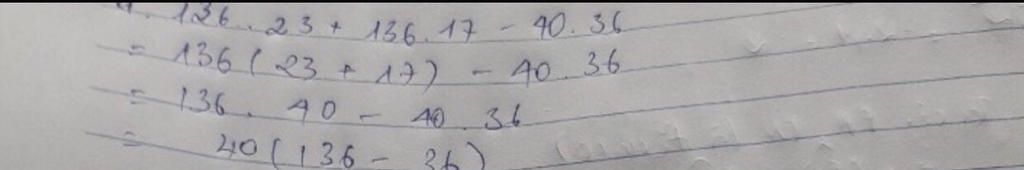 136.23 + 136.17 - 40.36
= 136(23 + 17) - 40.36
= 136. 40 - 40.36
= 40(136 - 36)